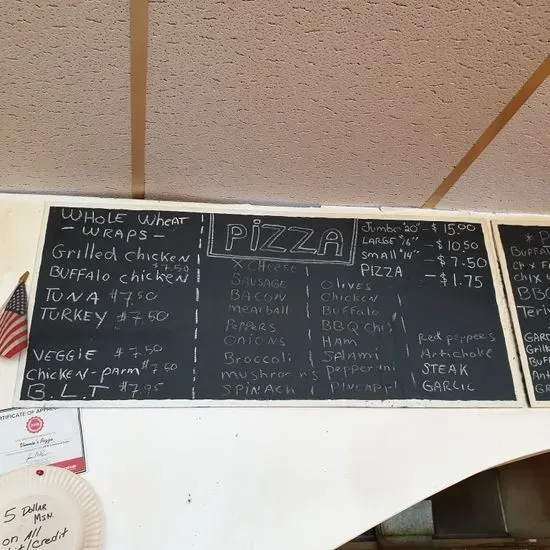 WHOLE WHEAT
- WRAPS -
Grilled chicken
$7.50
BUFFALO chicken
TUNA $7.50
TURKEY $7.50
VEGGIE $7.50
CHICKEN-PARM $7.50
B.L.T $7.95
PIZZA
X CHeese
SAUSAGE
BACON
meatball
PePPeRS
ONIONS
Broccoli
mushrooms
SPINACH
OLIVES
Chicken
Buffalo
BBQ Chi
HAM
SALAMI
pepperoni
PINEAPPL
Red peppers
Artichoke
STEAK
GARLIC
Jumbo 20" - $15.00
LARGE "16" - $10.50
small "14" - $7.50
PIZZA - $1.75
BUFFA
BBQ
Teri
GARD
GRill
Buff
Ant
CERTIFICATE OF APPREC
Vinnie's Pizza
5 DOLLAR
MIN.
on All
bit/credit